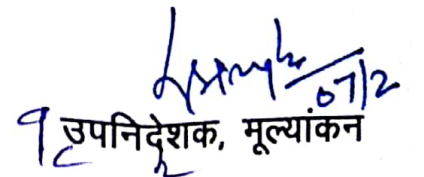 07/2
उपनिदेशक, मूल्यांकन